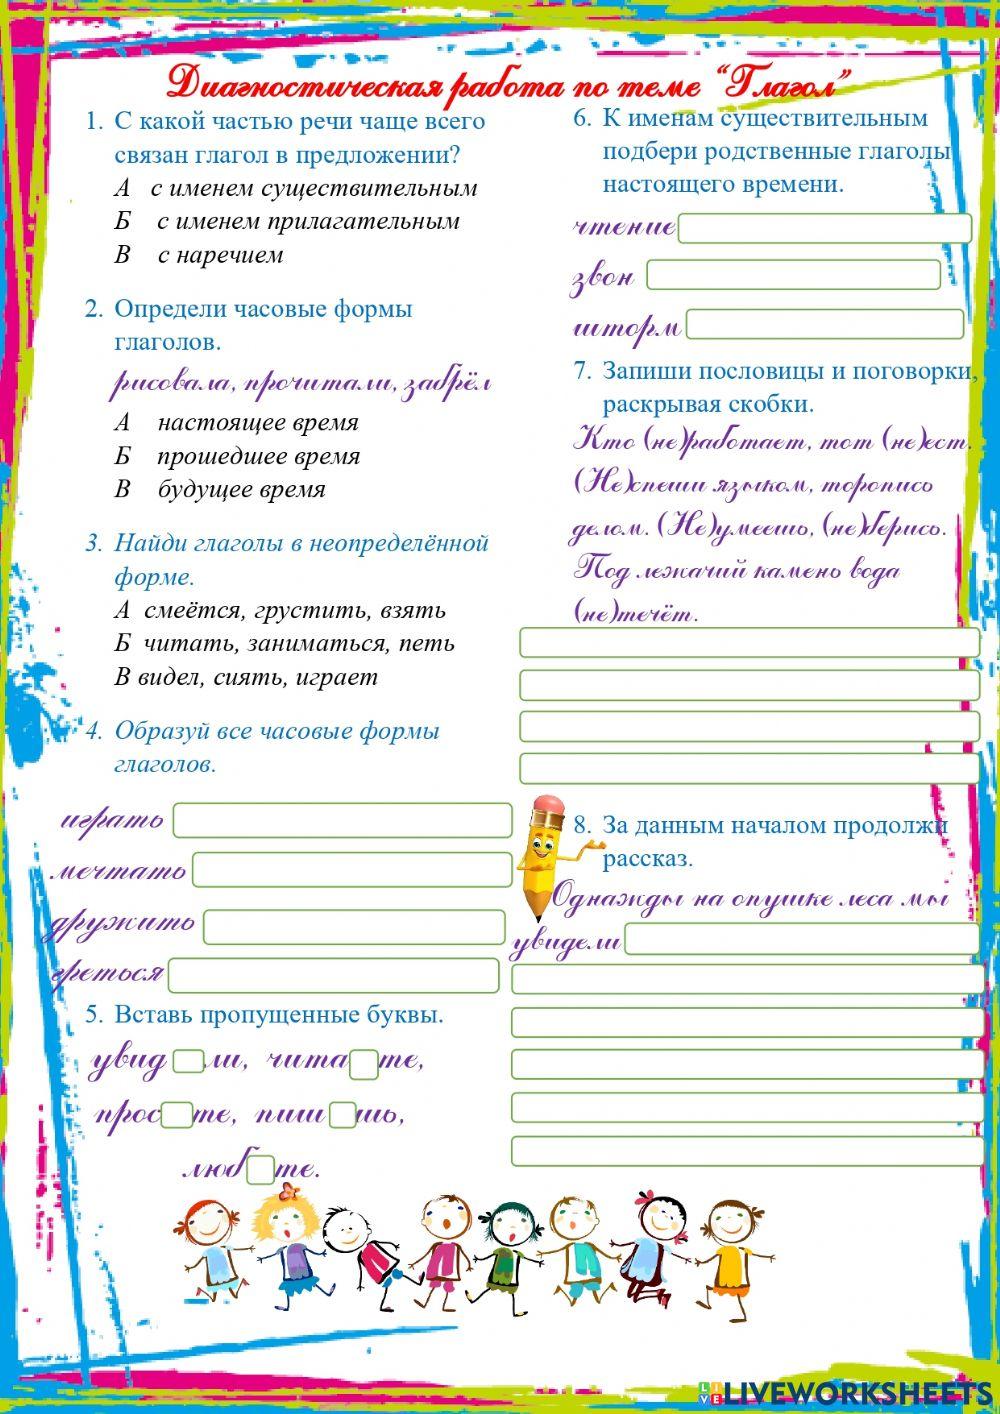 Диагностическая работа по теме “Глагол”
1. С какой частью речи чаще всего
связан глагол в предложении?
А с именем существительным
Б с именем прилагательным
В с наречием
2. Определи часовые формы
глаголов.
рисовала, прочитали, забрёл
А настоящее время
Б прошедшее время
В будущее время
3. Найди глаголы в неопределённой
форме.
А смеётся, грустить, взять
Б читать, заниматься, петь
В видел, сиять, играет
4. Образуй все часовые формы
глаголов.
играть
мечтать
дружить
греться
5. Вставь пропущенные буквы.
увид ли, чита те,
прос те, пиш шь,
люб те.
6. К именам существительным
подбери родственные глаголы
настоящего времени.
чтение
звон
шторм
7. Запиши пословицы и поговорки,
раскрывая скобки.
Кто (не)работает, тот (не)ест.
(Не)спеши языком, торопись
делом. (Не)умеешь, (не)берись.
Под лежачий камень вода
(не)течёт.
8. За данным началом продолжи
рассказ.
Однажды на опушке леса мы
увидели
LIVE LIVEWORKSHEETS